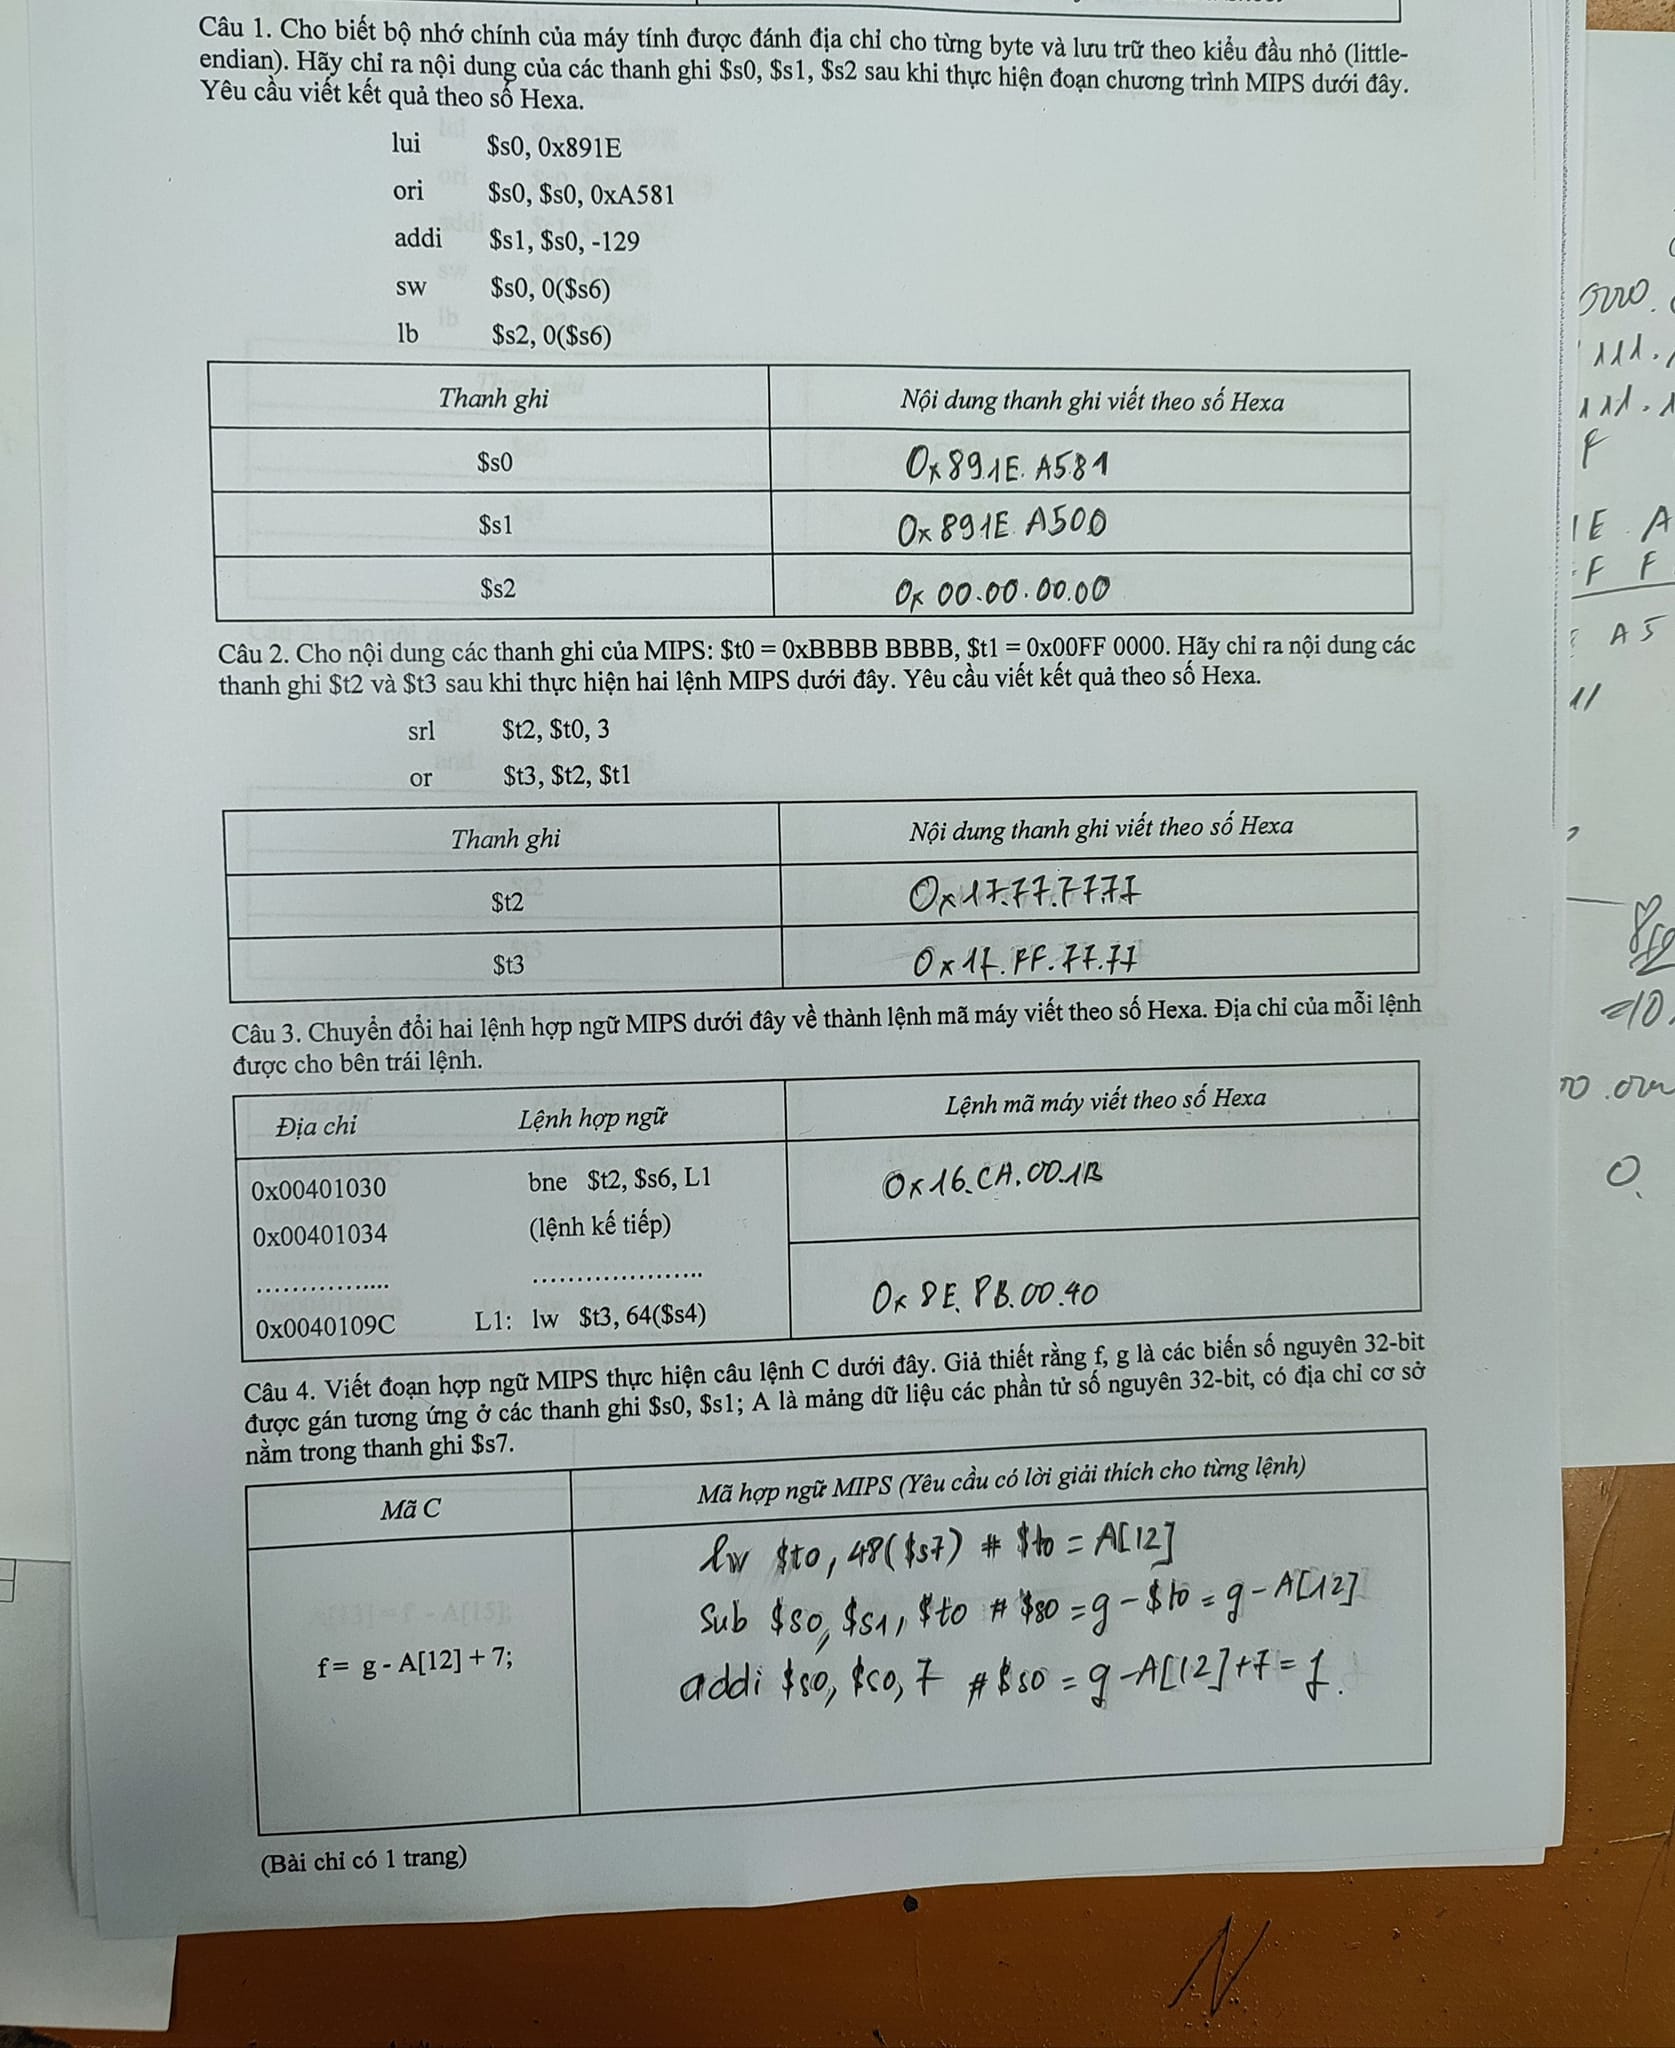 Câu 1. Cho biết bộ nhớ chính của máy tính được đánh địa chỉ cho từng byte và lưu trữ theo kiểu đầu nhỏ (little-
endian). Hãy chỉ ra nội dung của các thanh ghi $s0, $s1, $s2 sau khi thực hiện đoạn chương trình MIPS dưới đây.
Yêu cầu viết kết quả theo số Hexa.
lui $s0, 0x891E
ori $s0, $s0, 0xA581
addi $s1, $s0, -129
sw $s0, 0($s6)
lb $s2, 0($s6)
Thanh ghi Nội dung thanh ghi viết theo số Hexa
$s0 0x891E. A581
$s1 0x891E. A500
$s2 0x 00.00.00.00
Câu 2. Cho nội dung các thanh ghi của MIPS: $t0 = 0xBBBB BBBB, $t1 = 0x00FF 0000. Hãy chỉ ra nội dung các
thanh ghi $t2 và $t3 sau khi thực hiện hai lệnh MIPS dưới đây. Yêu cầu viết kết quả theo số Hexa.
srl $t2, $t0, 3
or $t3, $t2, $t1
Thanh ghi Nội dung thanh ghi viết theo số Hexa
$t2 0x17.77.77.77
$t3 0x17.FF.77.77
Câu 3. Chuyển đổi hai lệnh hợp ngữ MIPS dưới đây về thành lệnh mã máy viết theo số Hexa. Địa chỉ của mỗi lệnh
được cho bên trái lệnh.
Địa chỉ Lệnh hợp ngữ Lệnh mã máy viết theo số Hexa
0x00401030 bne $t2, $s6, L1 0x16.CA.00.1B
0x00401034 (lệnh kế tiếp)
................ .....................
0x0040109C L1: lw $t3, 64($s4) 0x8E.8B.00.40
Câu 4. Viết đoạn hợp ngữ MIPS thực hiện câu lệnh C dưới đây. Giả thiết rằng f, g là các biến số nguyên 32-bit
được gán tương ứng ở các thanh ghi $s0, $s1; A là mảng dữ liệu các phần tử số nguyên 32-bit, có địa chỉ cơ sở
nằm trong thanh ghi $s7.
Mã C Mã hợp ngữ MIPS (Yêu cầu có lời giải thích cho từng lệnh)
lw $t0, 48($s7) # $t0 = A[12]
Sub $s0, $s1, $t0 # $s0 = g - $t0 = g - A[12]
f = g - A[12] + 7;
addi $s0, $s0, 7 # $s0 = g - A[12] + 7 = f.
(Bài chỉ có 1 trang)